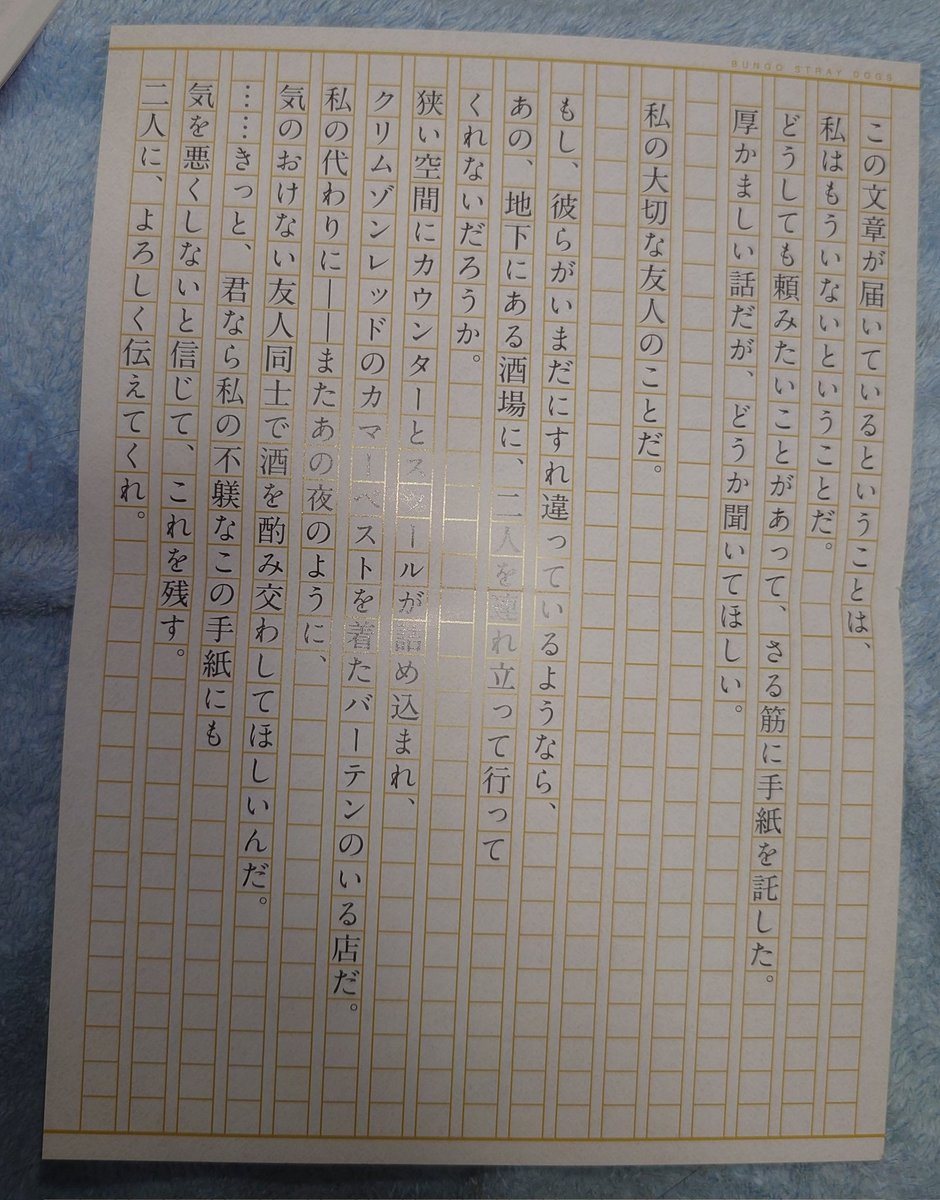 BUNGO STRAY DOGS
この文章が届いているということは、
私はもういないということだ。
どうしても頼みたいことがあって、さる筋に手紙を託した。
厚かましい話だが、どうか聞いてほしい。
私の大切な友人のことだ。
もし、彼らがいまだにすれ違っているようなら、
あの、地下にある酒場に、二人を連れ立って行って
くれないだろうか。
狭い空間にカウンターとスツールが詰め込まれ、
クリムゾンレッドのカマーベストを着たバーテンのいる店だ。
私の代わりに――またあの夜のように、
気のおけない友人同士で酒を酌み交わしてほしいんだ。
……きっと、君なら私の不躾なこの手紙にも
気を悪くしないと信じて、これを残す。
二人に、よろしく伝えてくれ。